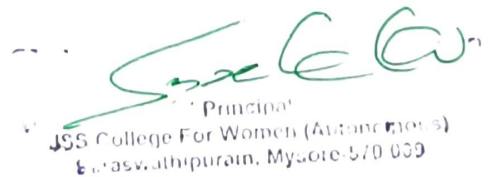 Principal
JSS College For Women (Autonomous)
Saraswathipuram, Mysore-570 009